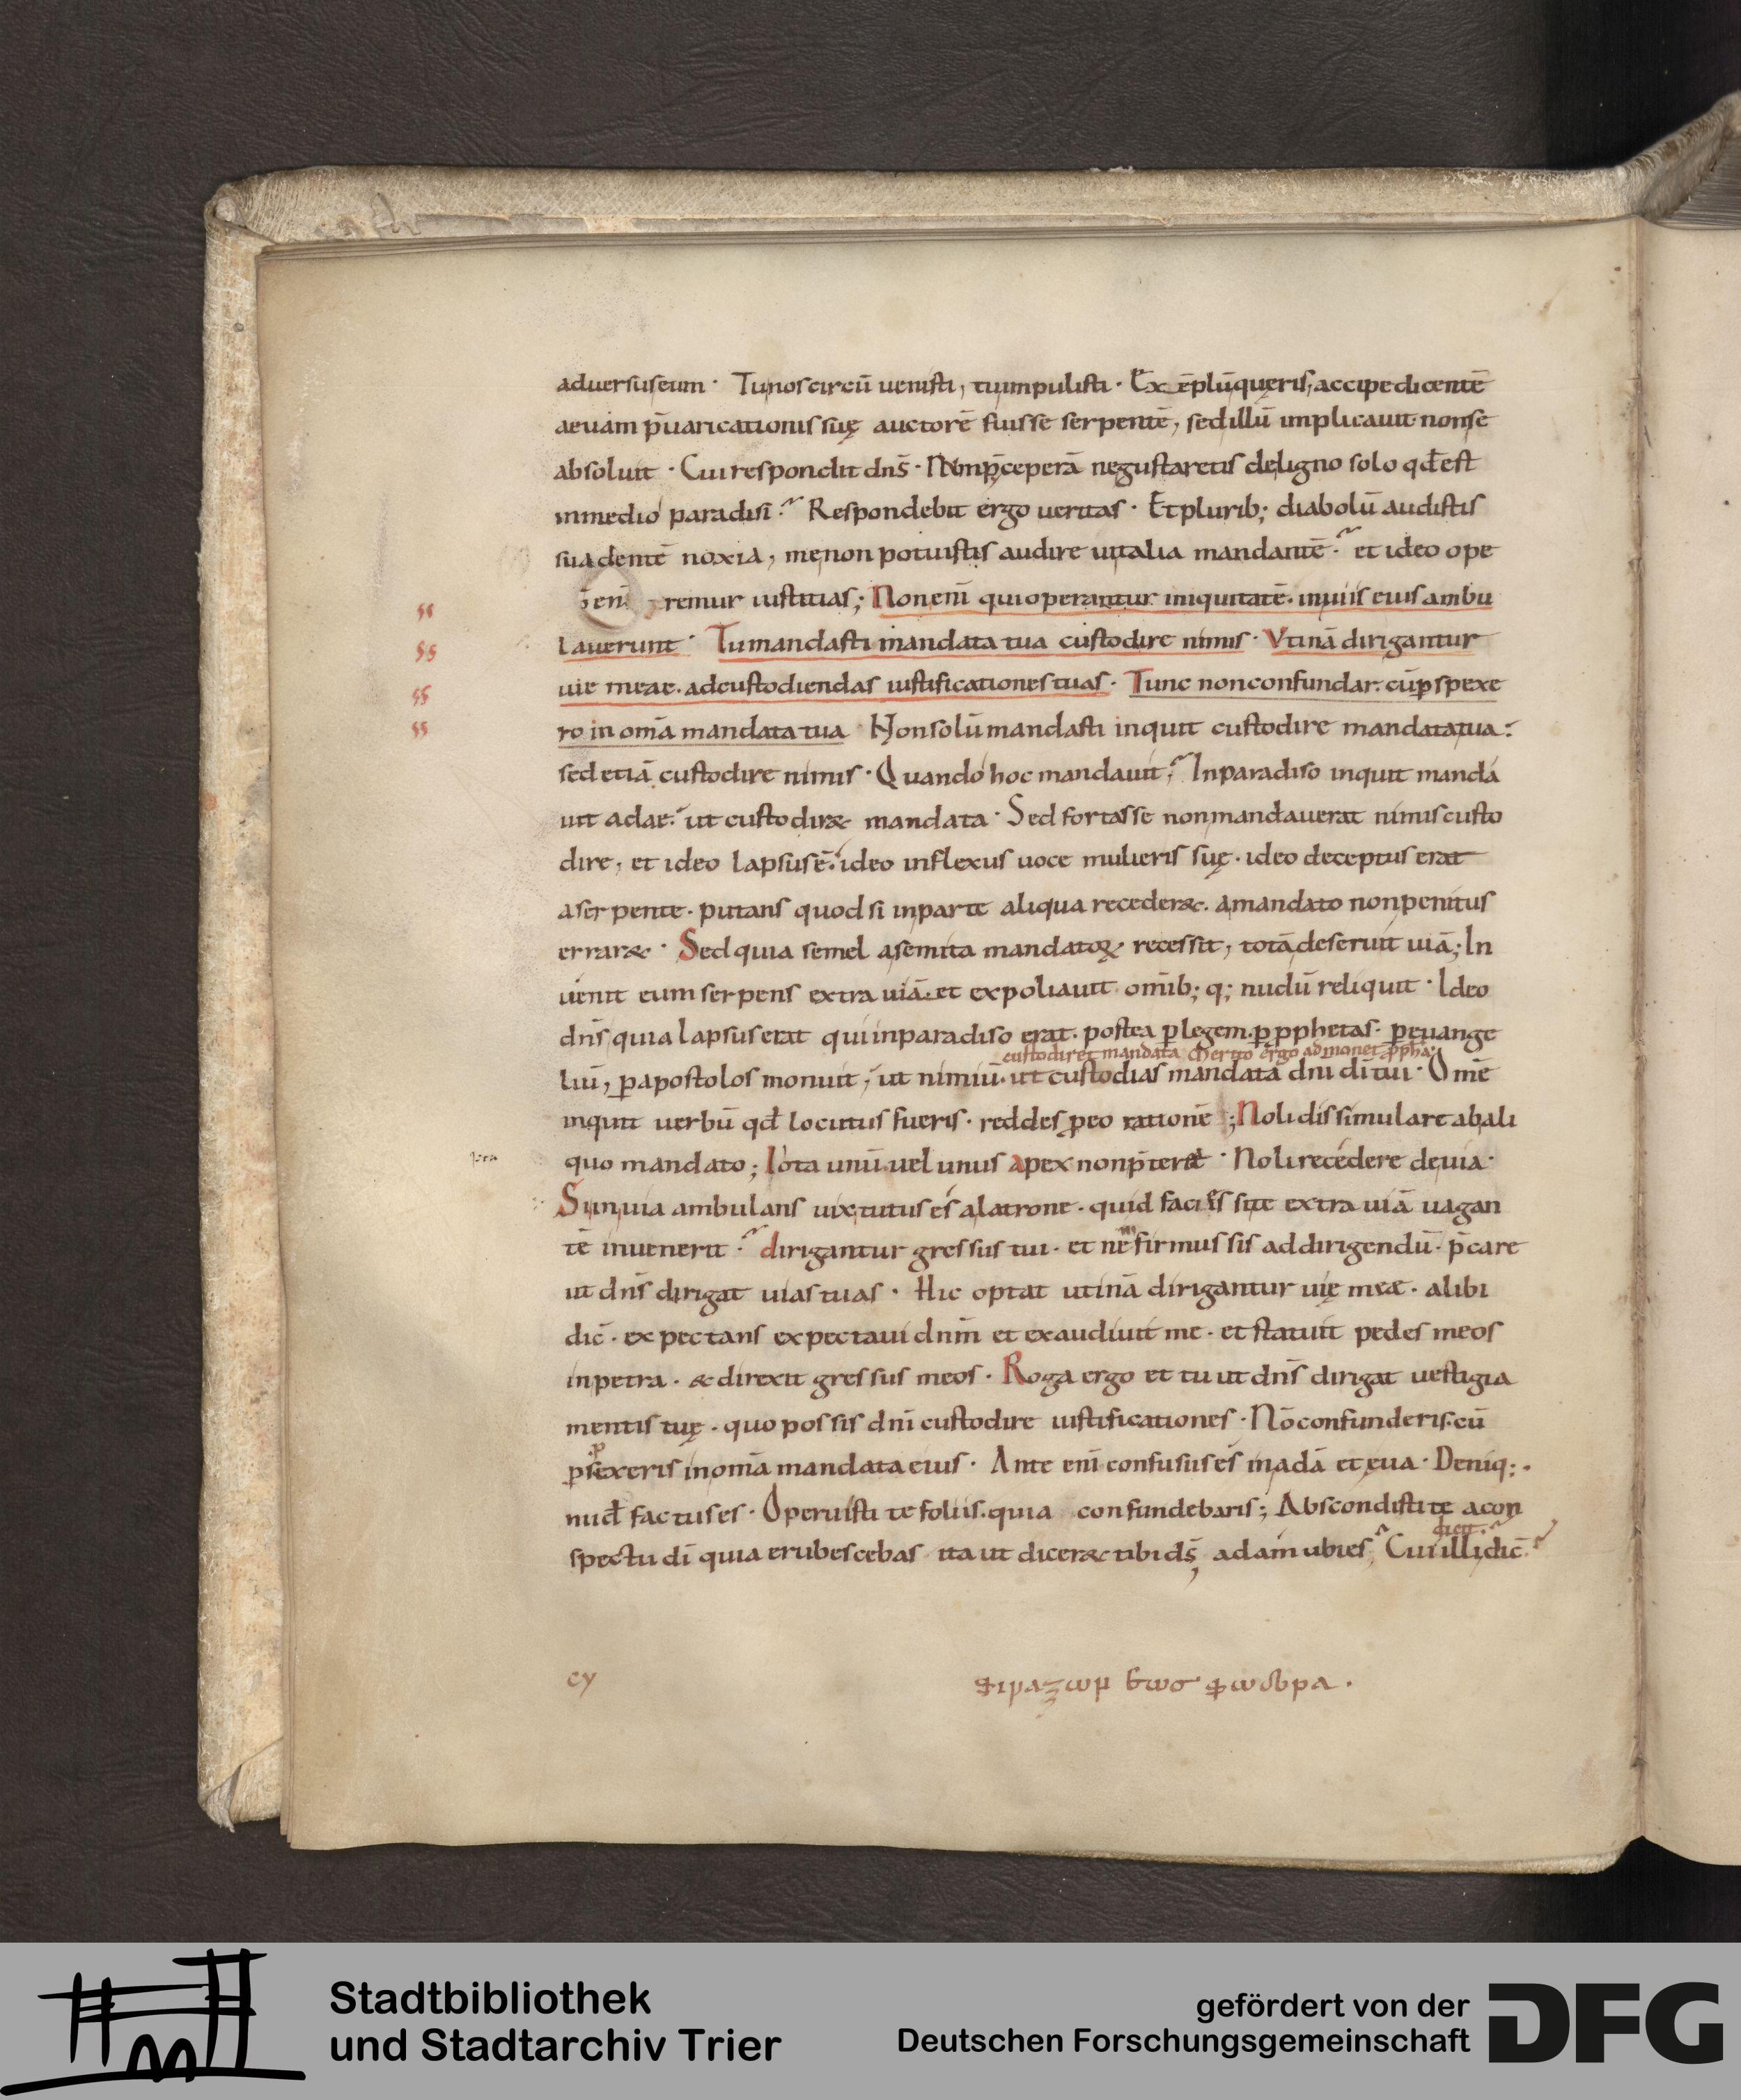 aduersus eum · Tu nos circū uenisti, tu impulisti · Ex ēplū queris, accipe dicentē
aeuam p̄uaricationis suę auctorē fuisse serpentē, sed illū implicauit non se
absoluit · Cui respondit dn̄s · Nūm p̄ceperā ne gustaretis de ligno solo qđ est
in medio paradisi? Respondebit ergo ueritas · Et plurib; diabolū audistis
suadentē noxia, me non potuistis audire uitalia mandantē? et ideo ope
remur iustitias; Non enī qui operantur iniquitatē · in uiis eius ambu
lauerunt · Tu mandasti mandata tua custodire nimis · Vtinā dirigantur
uie meae · ad custodiendas iustificationes tuas · Tunc non confundar · cū p̱spexe
ro in om̄a mandata tua Non solū mandasti inquit custodire mandata tua:
sed etiā custodire nimis · Quando hoc mandauit? In paradiso inquit manda
uit adae: ut custodir& mandata · Sed fortasse non mandauerat nimis custo
dire, et ideo lapsus ē · ideo inflexus uoce mulieris suę · ideo deceptus erat
a serpente · putans quod si in parte aliqua receder& · a mandato non penitus
errar& · Sed quia semel a semita mandatoꝝ recessit, totā deseruit uiā; In
uenit eum serpens extra uiā · et expoliauit om̄ib; q; nudū reliquit · Ideo
dn̄s quia lapsus erat qui in paradiso erat · postea ꝑ legem · ꝑ ꝓphetas · ꝑ euange
custodiret mandata Merito ergo admonet ꝓpha:
liū, ꝑ apostolos monuit, ut nimiū · ut custodias mandata dn̄i dī tui · Om̄e
inquit uerbū qđ locutus fueris · reddes ꝑ eo rationē; Noli dissimulare ab ali
quo mandato; Iota unū uel unus apex non p̄teri& · Noli recedere de uia ·
Si in uia ambulans uix tutus es a latrone · quid facies si te extra uiā uagan
tē inuenerit? dirigantur gressus tui · et ne firmus sis ad dirigendū · p̄care
ut dn̄s dirigat uias tuas · Hic optat utinā dirigantur uię meae · alibi
dic̄ · expectans expectaui dn̄m et exaudiuit me · et statuit pedes meos
in petra · & direxit gressus meos · Roga ergo et tu ut dn̄s dirigat uestigia
mentis tuę · quo possis dn̄i custodire iustificationes · Nō confunderis · cū
ꝑspexeris in om̄ia mandata eius · Ante enī confusus es in adā et eua · Deniq; ·
nud̄ factus es · Operuisti te foliis · quia confundebaris; Abscondisti te a con
spectu dī quia erubescebas ita ut dicer& tibi ds̄, adam ubi es? Cui illi dic̄
Stadtbibliothek
und Stadtarchiv Trier
gefördert von der
Deutschen Forschungsgemeinschaft
DFG